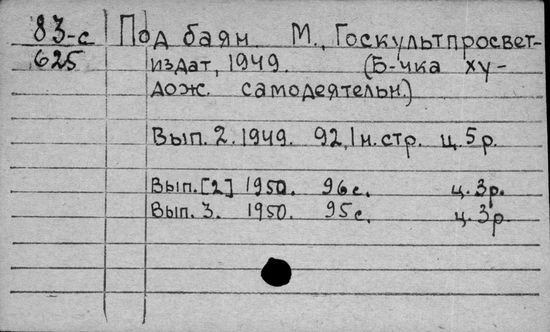 83-с Под баян М., Госкультпросвет-
625 издат, 1949. (Б-чка ху-
дож. самодеятельн.)
Вып. 2. 1949. 92, 1 н. стр. ц. 5 р.
Вып. [2] 1950. 96 с. ц. 3 р.
Вып. 3. 1950. 95 с. ц. 3 р.